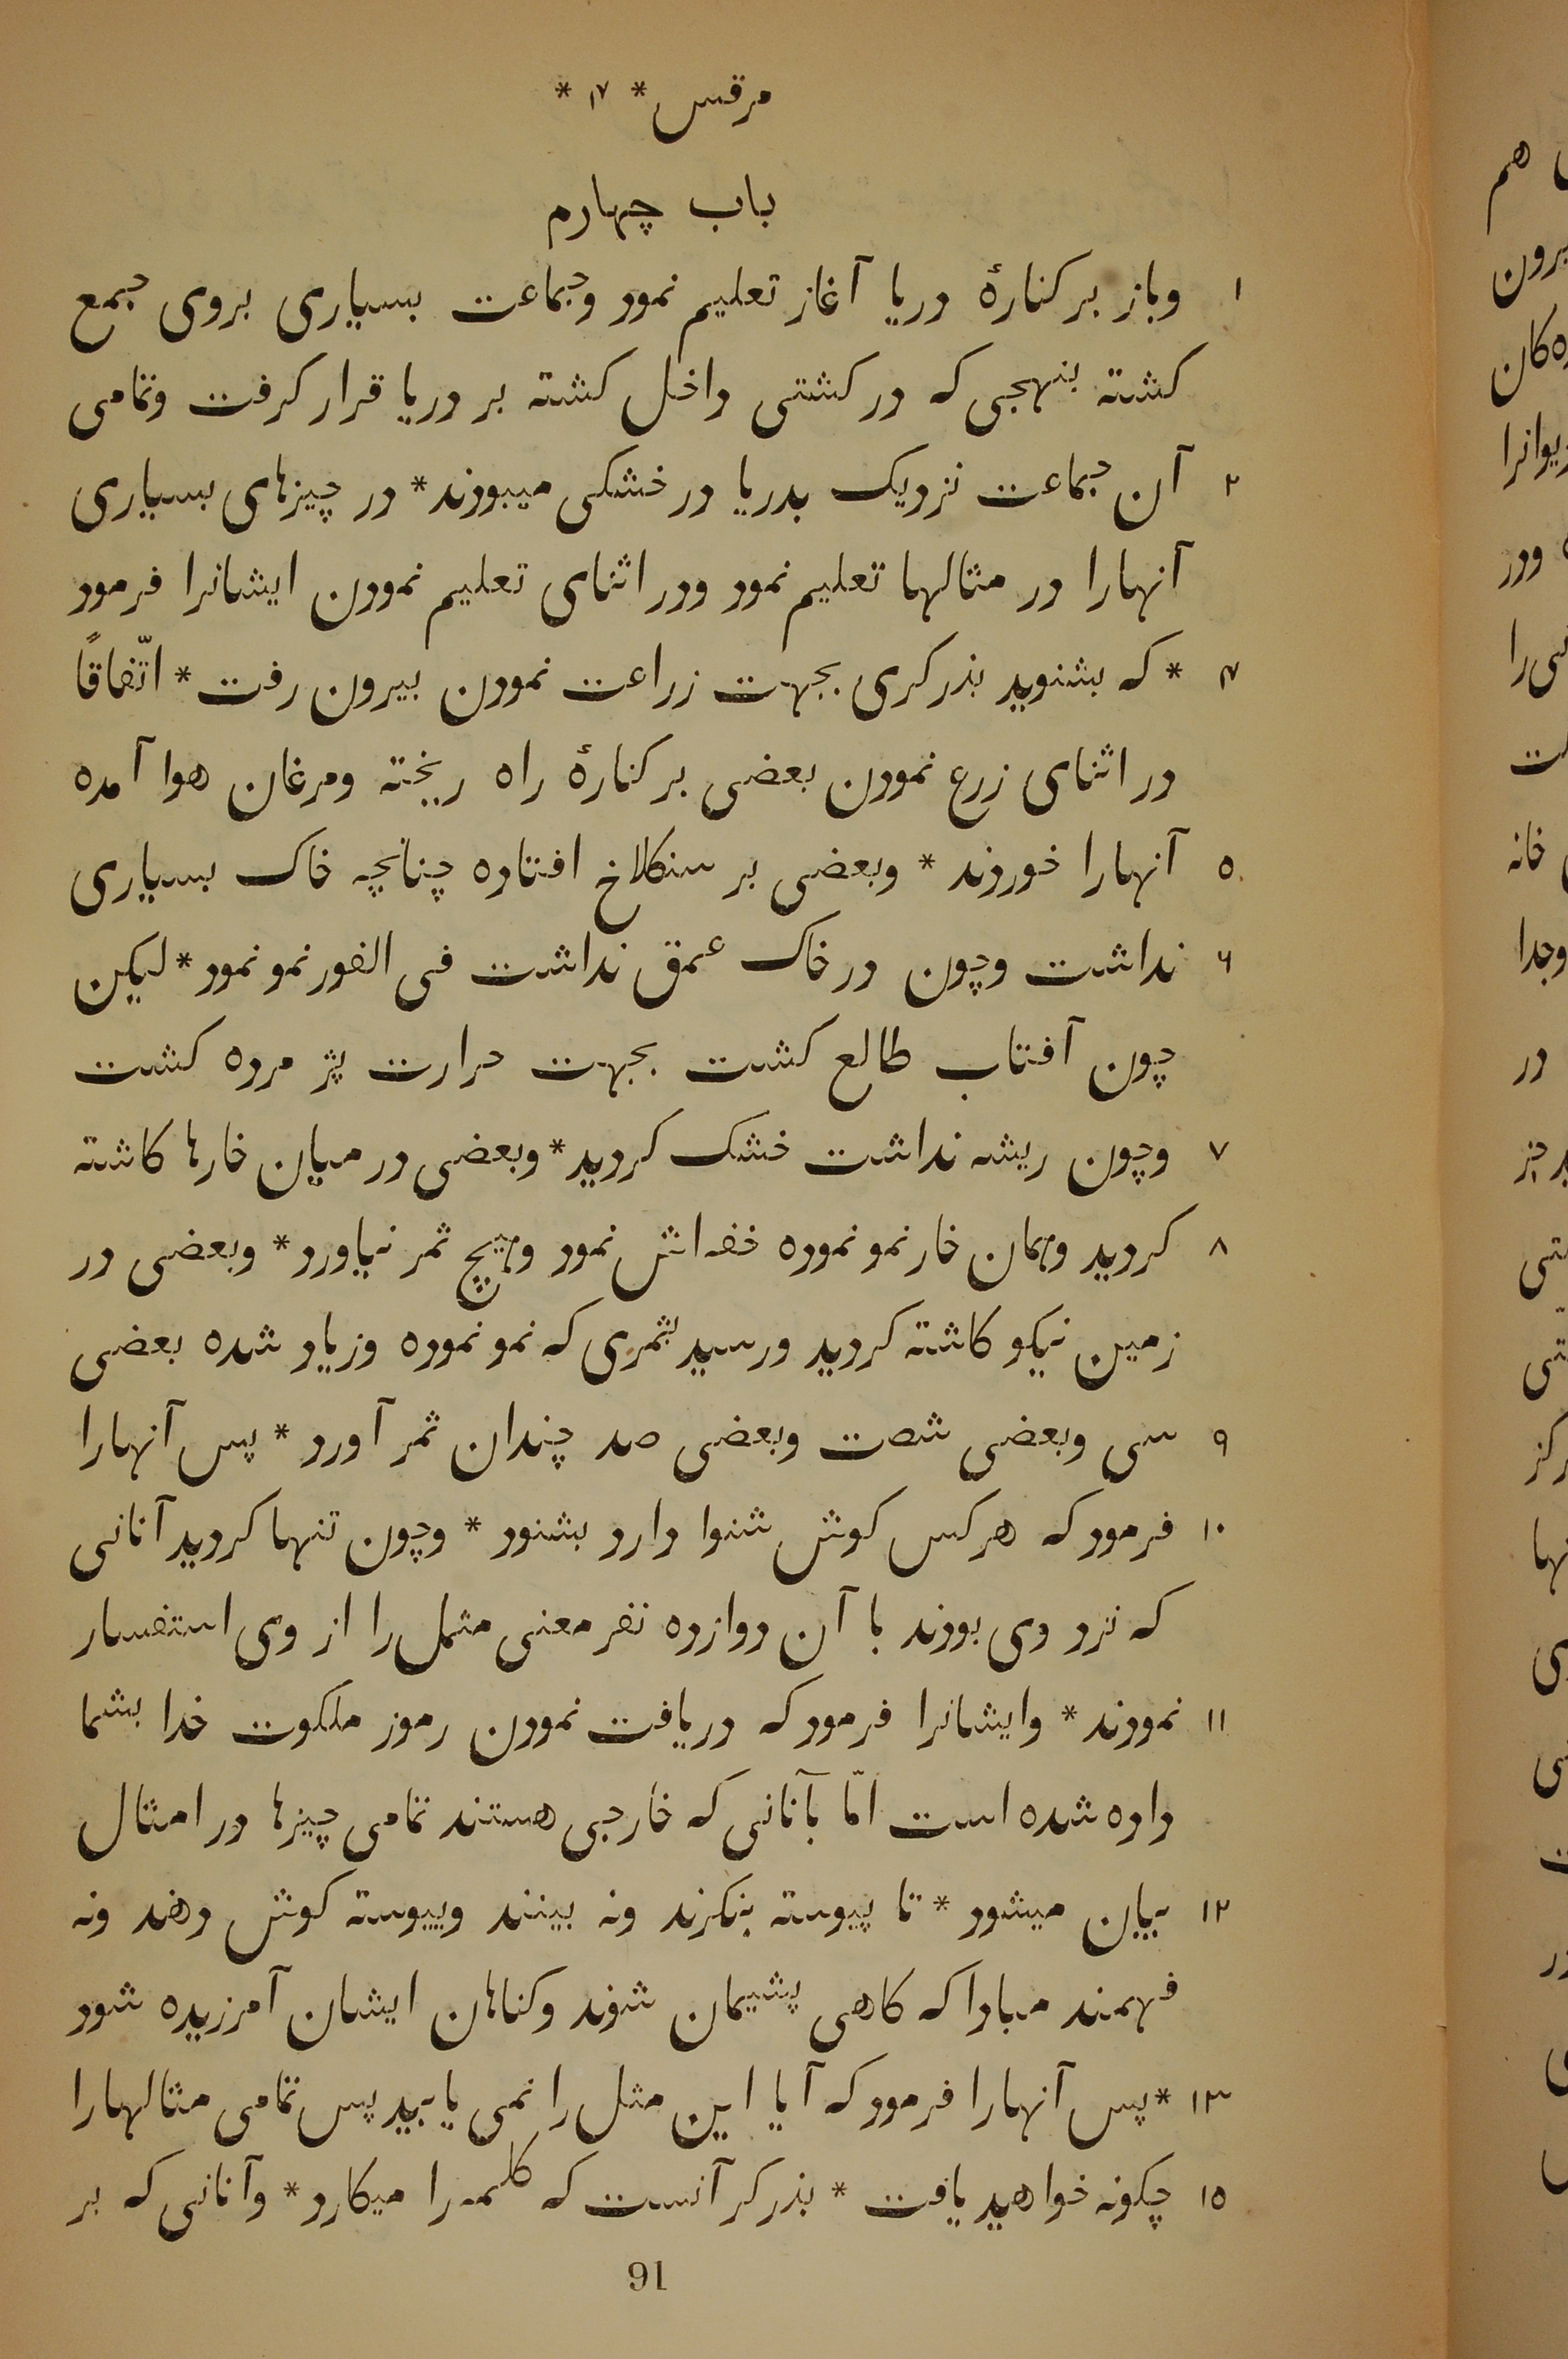 مرقس * ۱۷ *
باب چهارم
۱ وباز بر کنارهٔ دریا آغاز تعلیم نمود وجماعت بسیاری بروی جمع
کشته بنهجی که در کشتی داخل کشته بر دریا قرار کرفت وتمامی
۲ آن جماعت نزدیک بدریا در خشکی میبودند * در چیزهای بسیاری
آنهارا در مثالها تعلیم نمود ودر اثنای تعلیم نمودن ایشانرا فرمود
* که بشنوید بذرکری بجهت زراعت نمودن بیرون رفت * اتّفاقًا
در اثنای زرع نمودن بعضی بر کنارهٔ راه ریخته ومرغان هوا آمده
۵ آنهارا خوردند * وبعضی بر سنکلاخ افتاده چنانچه خاک بسیاری
۶ نداشت وچون در خاک عمق نداشت فی الفور نمو نمود * لیکن
چون آفتاب طالع کشت بجهت حرارت پژ مرده کشت
۷ وچون ریشه نداشت خشک کردید * وبعضی در میان خارها کاشته
۸ کردید وهمان خار نمو نموده خفه‌اش نمود وهیچ ثمر نیاورد * وبعضی در
زمین نیکو کاشته کردید ورسید بثمری که نمو نموده وزیاد شده بعضی
۹ سی وبعضی شصت وبعضی صد چندان ثمر آورد * پس آنهارا
۱۰ فرمود که هر کس کوش شنوا دارد بشنود * وچون تنها کردید آنانی
که نزد وی بودند با آن دوازده نفر معنی مثل را از وی استفسار
۱۱ نمودند * وایشانرا فرمود که دریافت نمودن رموز ملکوت خدا بشما
داده شده است امّا بآنانی که خارجی هستند تمامی چیزها در امثال
۱۲ بیان میشود * تا پیوسته بنکرند ونه بینند وپیوسته کوش دهند ونه
فهمند مبادا که کاهی پشیمان شوند وکناهان ایشان آمرزیده شود
۱۳ * پس آنهارا فرمود که آیا این مثل را نمی یابید پس تمامی مثالهارا
۱۵ چکونه خواهید یافت * بذرکر آنست که کلمه را میکارد * وآنانی که بر
91